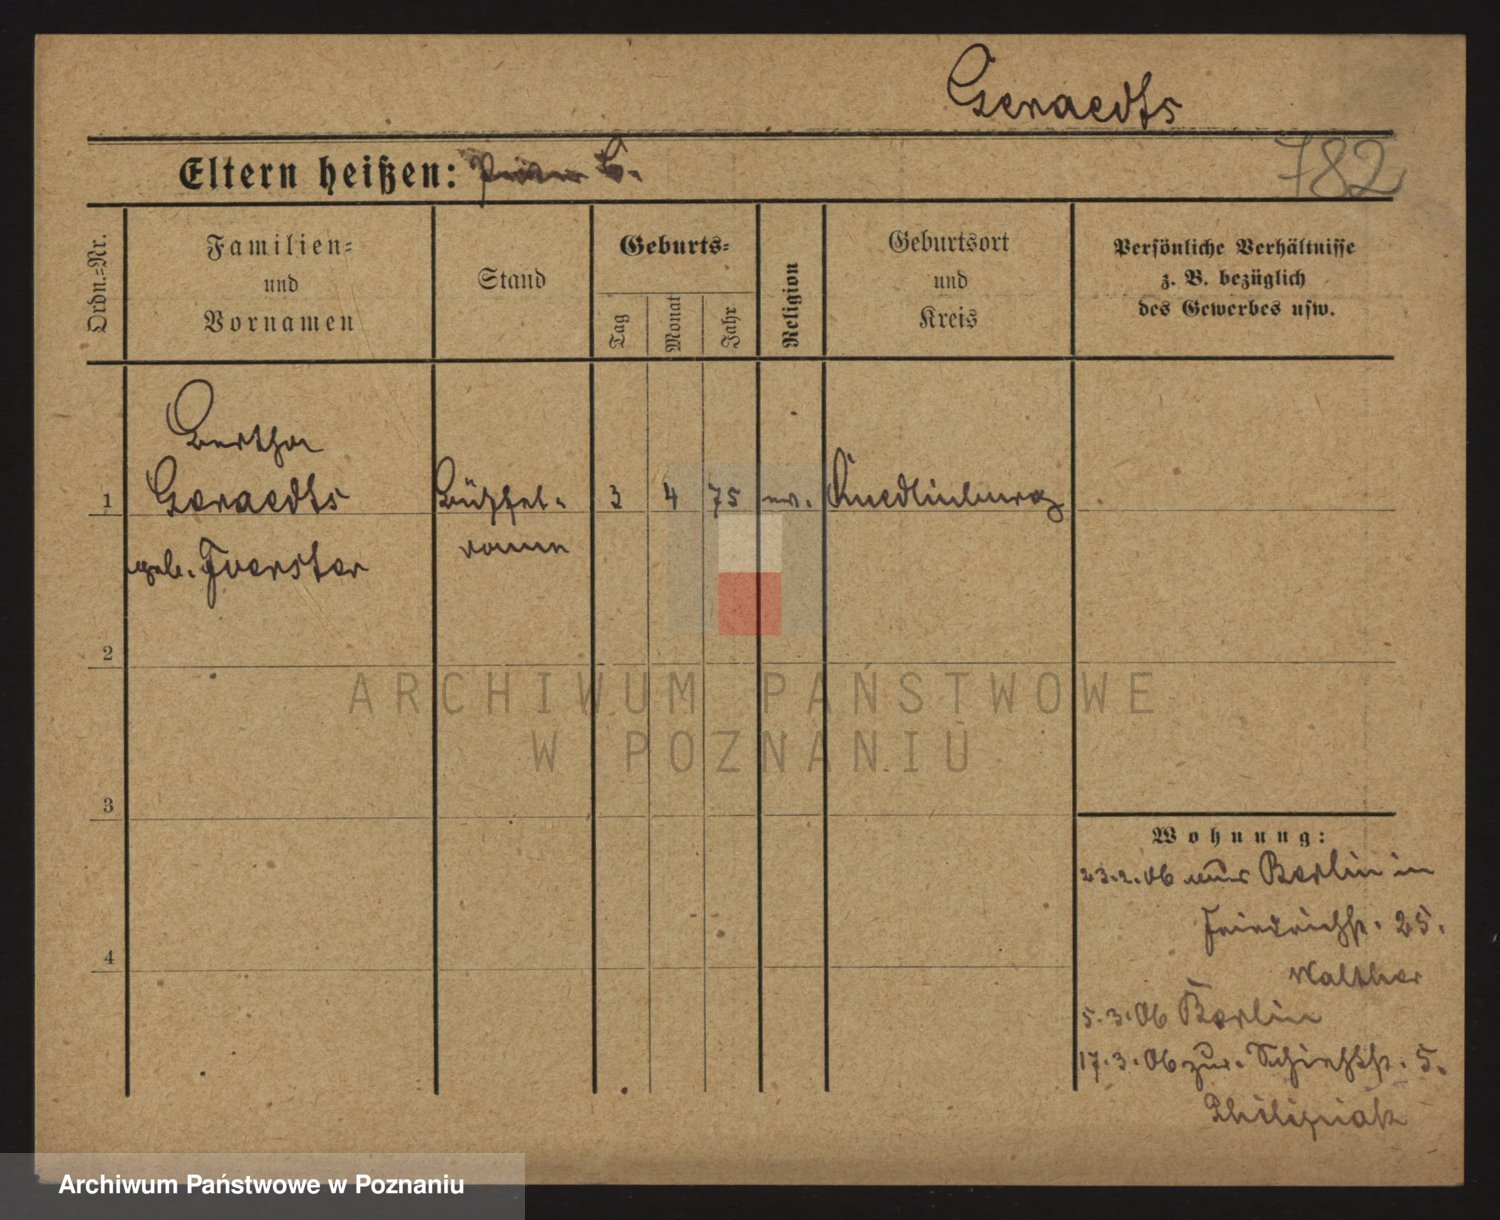 Geraedts
782
Eltern heißen:
Ordn.=Nr.
Familien=
und
Vornamen
Stand
Geburts=
Tag
Monat
Jahr
Religion
Geburtsort
und
Kreis
Persönliche Verhältnisse
z. B. bezüglich
des Gewerbes usw.
Bertha
1 Geraedts 3 4 75 ev. Quedlinburg
geb. Foerster
2
3
4
Wohnung:
23.2.06 aus Berlin in
Friedrichst. 25.
Walther
5.3.06 Berlin
17.3.06 zur. 5.
Philipiak
ARCHIWUM PAŃSTWOWE
W POZNANIU
Archiwum Państwowe w Poznaniu